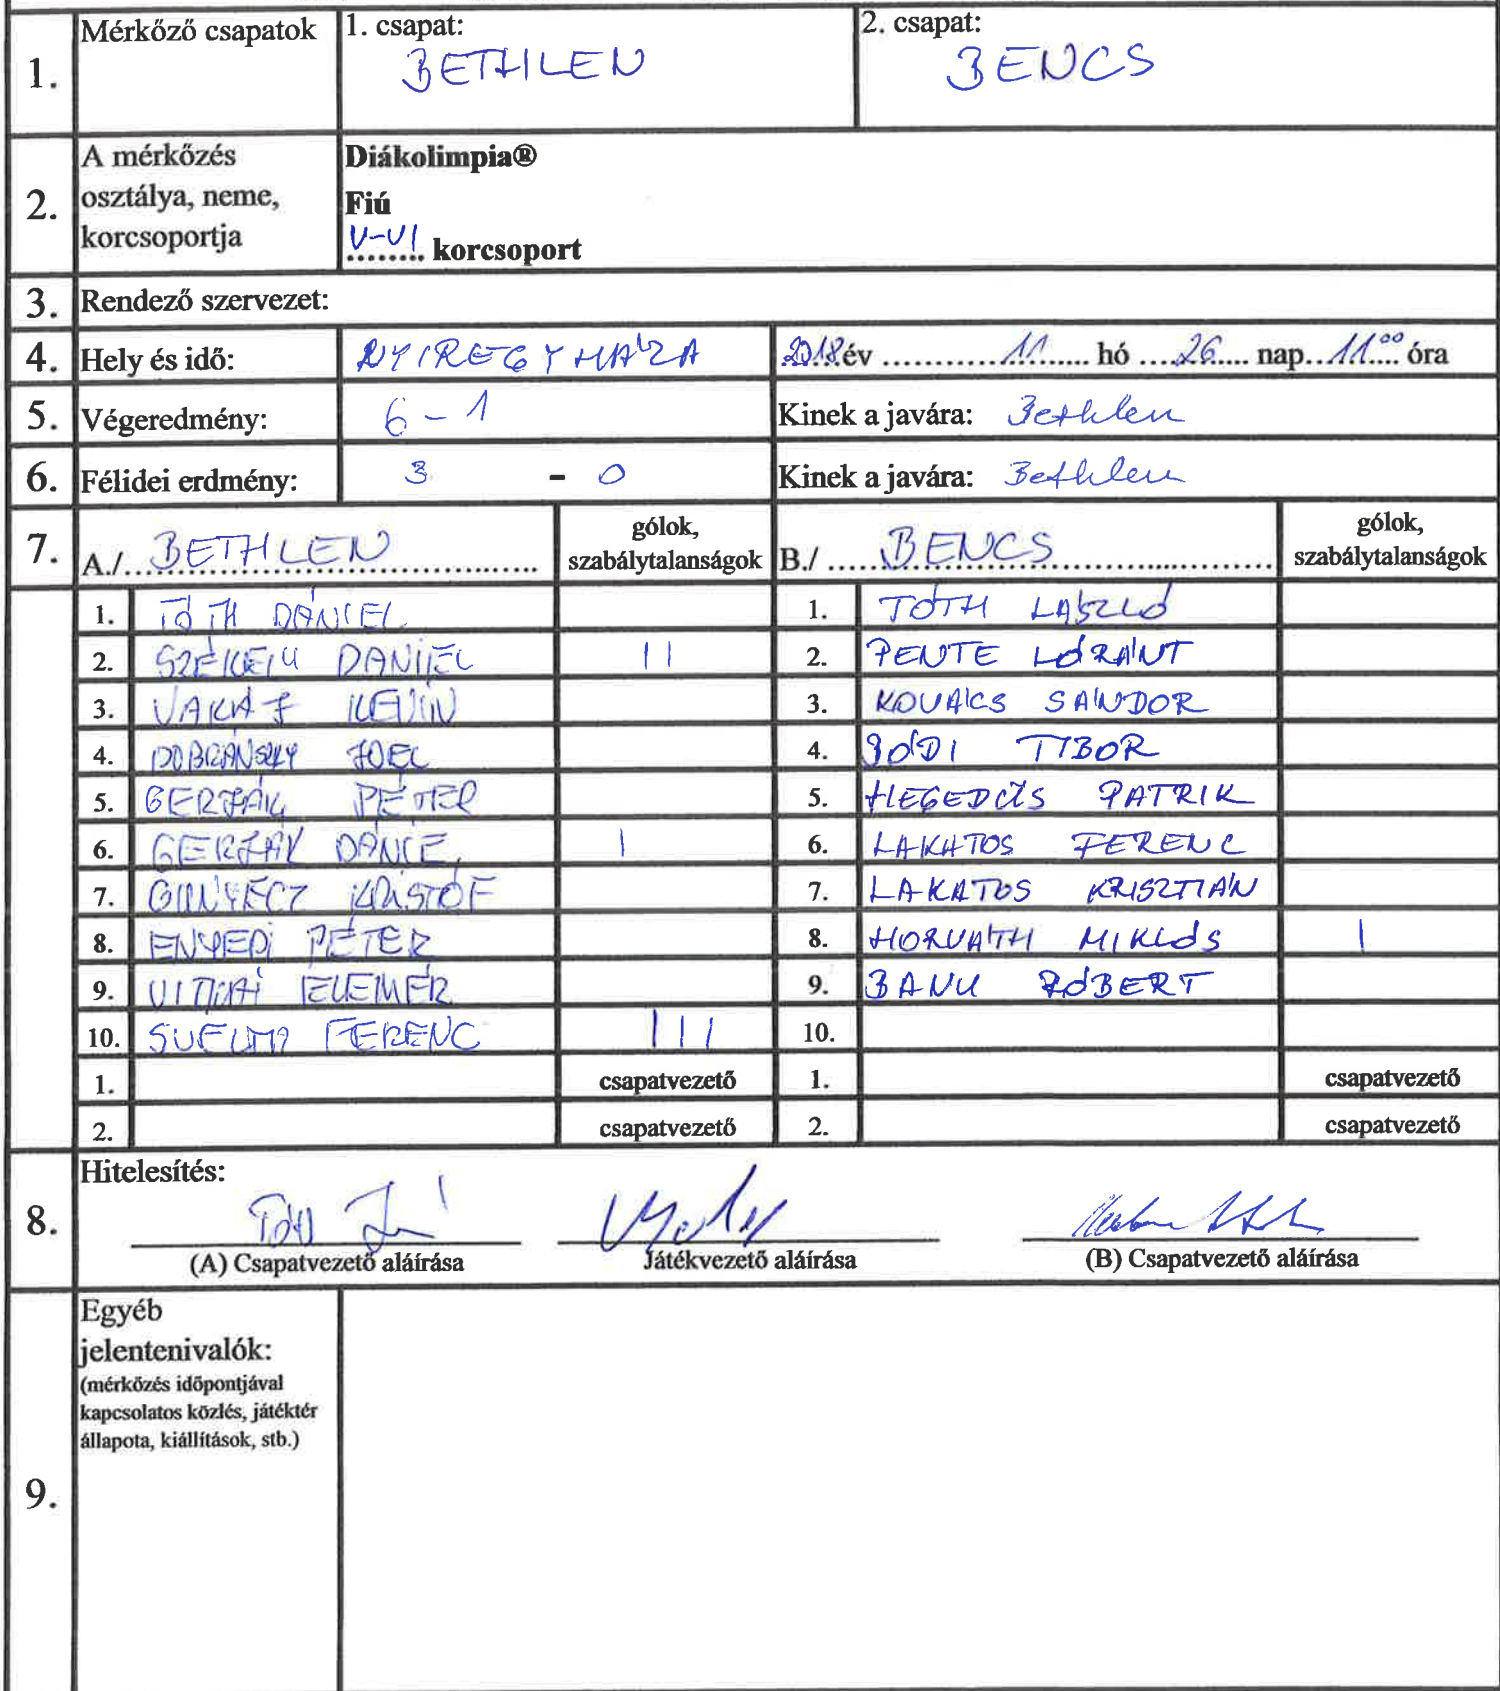 1. Mérkőző csapatok 1. csapat: BETHLEN 2. csapat: BENCS
2. A mérkőzés osztálya, neme, korcsoportja
Diákolimpia®
Fiú
V-VI korcsoport
3. Rendező szervezet:
4. Hely és idő: NYIREGYHÁZA 2018 év 11 hó 26 nap 11⁰⁰ óra
5. Végeredmény: 6 - 1 Kinek a javára: Bethlen
6. Félidei erdmény: 3 - 0 Kinek a javára: Bethlen
7. A./ BETHLEN gólok, szabálytalanságok B./ BENCS gólok, szabálytalanságok
1. TÓTH DÁNIEL 1. TÓTH LÁSZLÓ
2. SZÉKELY DANIJEL II 2. PENTE LÓRÁNT
3. KEVIN 3. KOVÁCS SÁNDOR
4. DOBRÁNSZKY JOEL 4. GÓDI TIBOR
5. GERZSÁK PÉTER 5. HEGEDŰS PATRIK
6. I 6. LAKATOS FERENC
7. KRISTÓF 7. LAKATOS KRISZTIÁN
8. ENYEDI PÉTER 8. HORVÁTH MIKLÓS I
9. ELEMÉR 9. RÓBERT
10. FERENC III 10.
1. csapatvezető 1. csapatvezető
2. csapatvezető 2. csapatvezető
8. Hitelesítés:
(A) Csapatvezető aláírása Játékvezető aláírása (B) Csapatvezető aláírása
9. Egyéb
jelentenivalók:
(mérkőzés időpontjával
kapcsolatos közlés, játéktér
állapota, kiállítások, stb.)